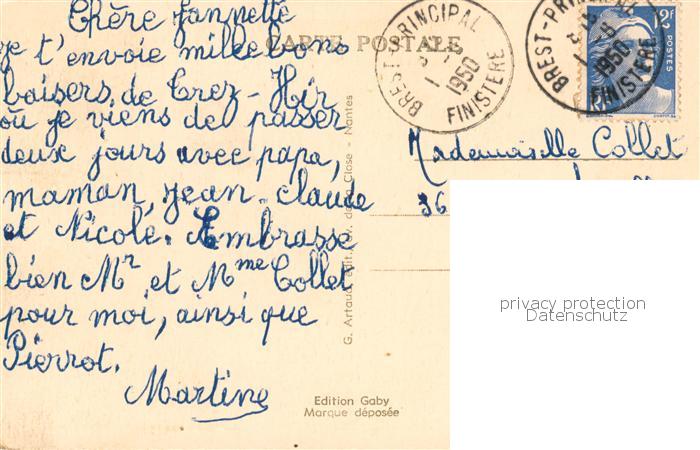 Chère Jannette
je t'envoie mille bons
baisers de Trez-Hir
où je viens de passer
deux jours avec papa,
maman, Jean-Claude
et Nicole. Embrasse
bien Mr et Mme Collet
pour moi, ainsi que
Pierrot.
Martine
CARTE POSTALE
BREST-PRINCIPAL
1950
FINISTERE
BREST-PRINCIPAL
1950
FINISTERE
12F
POSTES
Mademoiselle Collet
36
G. Artaud, édit. de la Close - Nantes
Edition Gaby
Marque déposée
privacy protection
Datenschutz